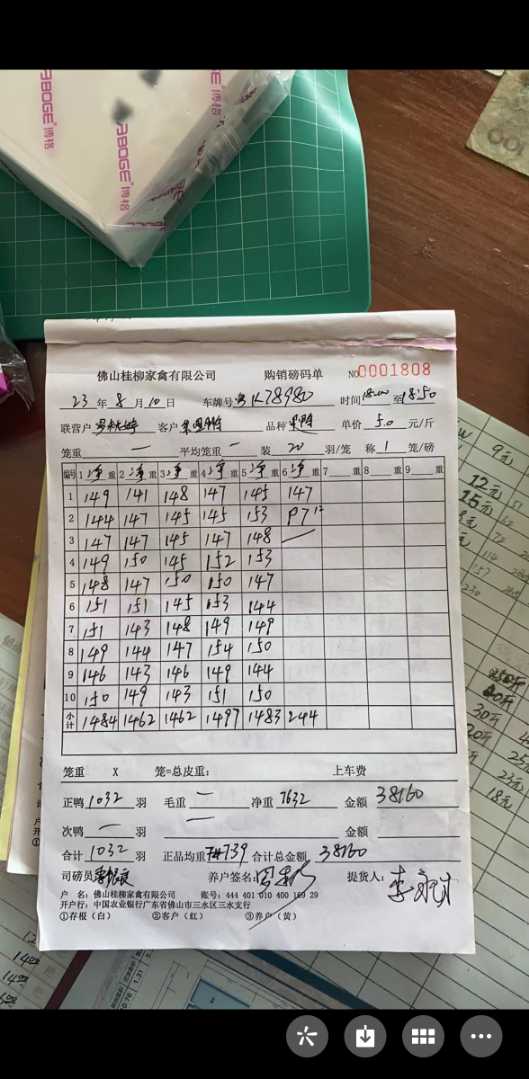 ABOGE 博格
ABOGE 博格
佛山桂柳家禽有限公司 购销磅码单 NO 0001808
23 年 8 月 10 日 车牌号 粤K78980 时间 至 18:50
联营户 客户 品种 单价 5.0 元/斤
笼重 一 平均笼重 一 装 20 羽/笼 称 1 笼/磅
编号 1 净 重 2 净 重 3 净 重 4 净 重 5 净 重 6 净 重 7 重 8 重 9 重
1 149 141 148 147 145 147
2 144 147 145 145 153 97 12
3 147 147 145 147 148
4 149 150 145 152 153
5 148 147 150 150 147
6 151 151 145 153 144
7 151 143 148 149 149
8 149 144 147 154 150
9 146 143 146 149 144
10 150 149 143 151 150
小计 1484 1462 1462 1497 1483 244
笼重 X 笼=总皮重: 上车费
正鸭 1032 羽 毛重 一 净重 7632 金额 38160
次鸭 一 羽 一 金额
合计 1032 羽 正品均重 739 合计总金额 38160
司磅员 养户签名: 提货人:
户 名: 佛山桂柳家禽有限公司 账号: 444 401 010 400 169 29
开户行: 中国农业银行广东省佛山市三水区三水支行
①存根(白) ②客户(红) ③养户(黄)
9元
12元
15元
30斤
25
23元
18元